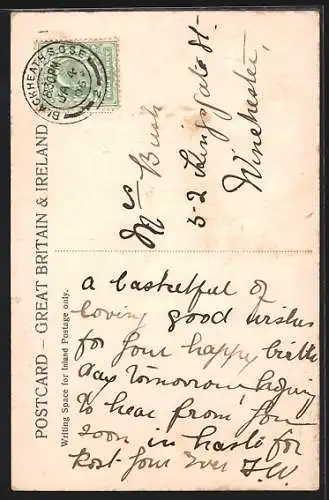 BLACKHEATH S.O. S.E.
8.30PM
JA 4
POSTCARD – GREAT BRITAIN & IRELAND
Writing Space for Inland Postage only.
Mrs Bush
52 Kingsgate St.
Winchester,
a basketful of
loving good wishes
for your happy birth
day tomorrow hoping
to hear from you
soon in haste for
Post your Ever F.W.